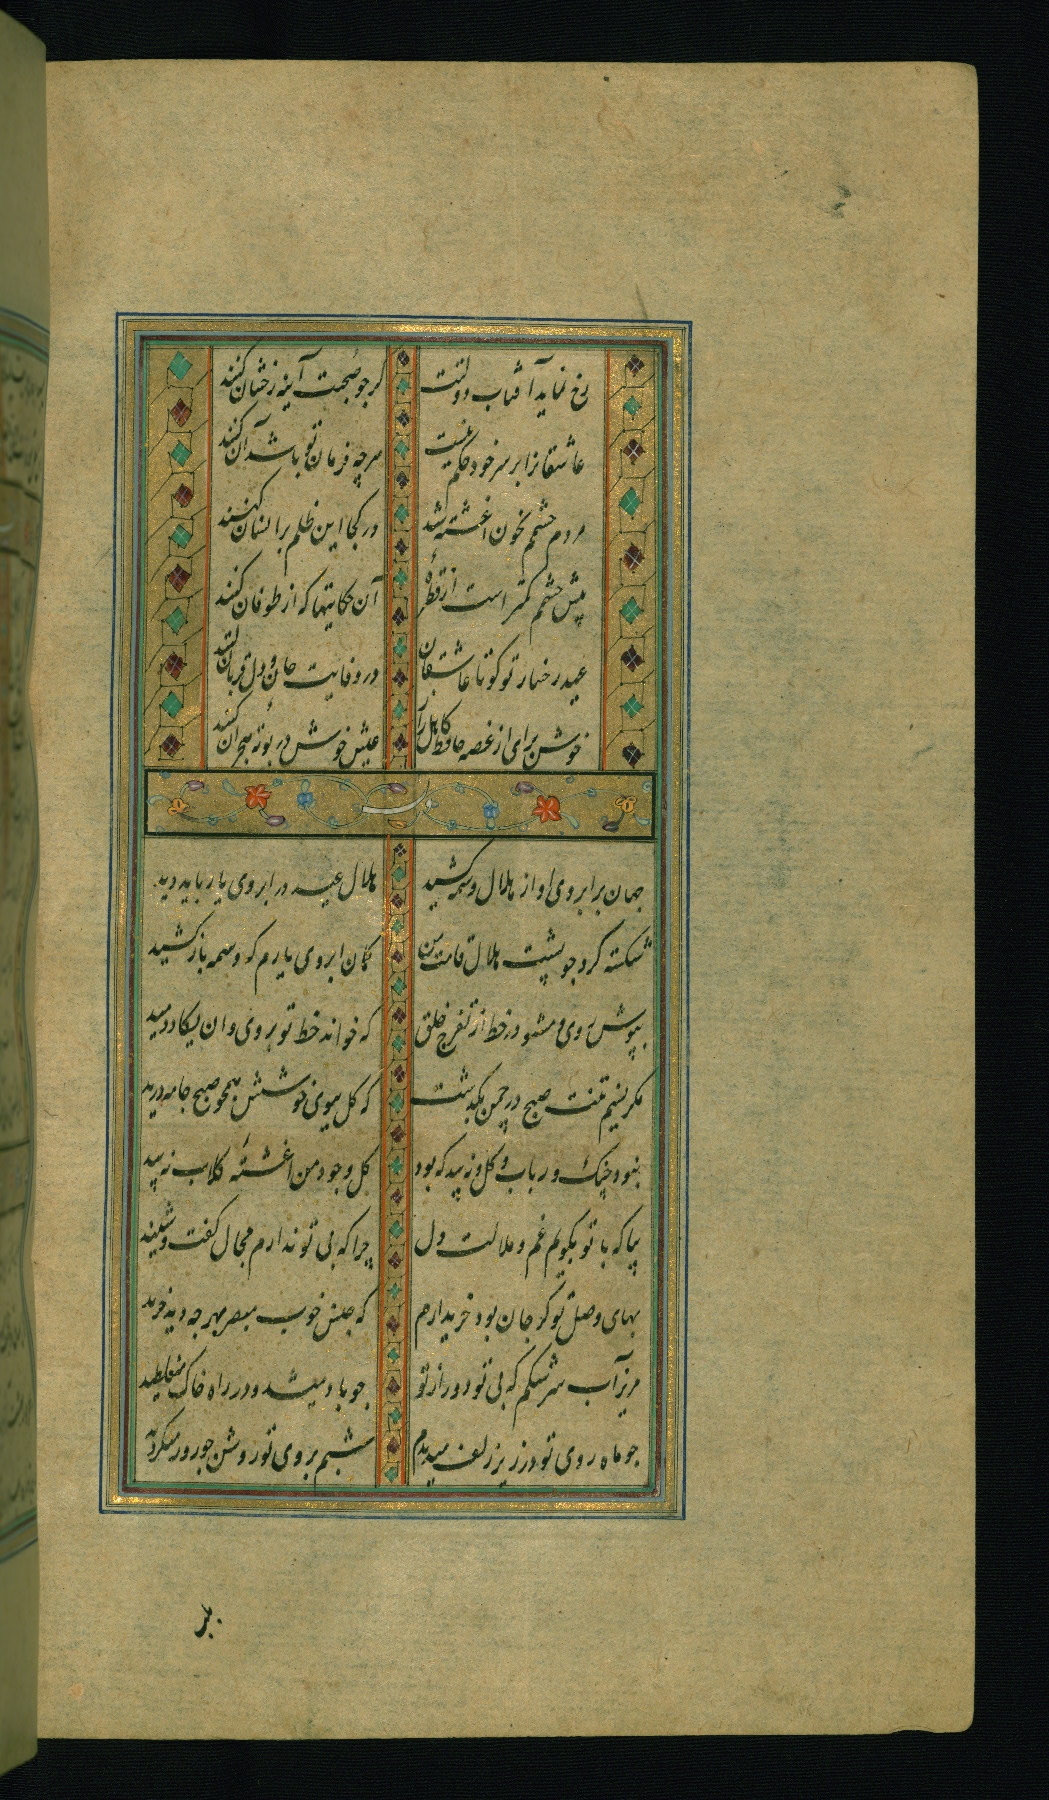 رخ نماید آفتاب دولتت کر چو صبحت آینه رخشان کنند
عاشقانرا بر سر خود حکم نیست هرچه فرمان تو باشد آن کنند
مردم چشمم بخون اغشته شد در کجا این ظلم بر انسان کنند
پیش چشمم کمتر است از قطرهٔ آن حکایتها که از طوفان کنند
عید رخسار تو کو تا عاشقان در وفایت جان و دل قربان کنند
خوش برای از غصه حافظ کاهل راز عیش خوش در بوتهٔ هجران کنند
جهان بر ابروی او از هلال وسمه کشید هلال عید در ابروی یار باید دید
شکسته کرد جو پشت هلال قامت من کمان ابروی یارم که وسمه باز کشید
بپوش روی و مشو در خط از تفرج خلق که خواند خط تو بر روی وان یکاد دمید
مکر نسیم تنت صبح در چمن بکذشت که کل ببوی خوشش همچو صبح جامه درید
نبود چنک و رباب و کل و نبید که بود کل وجود من اغشتهٔ کلاب نبید
بیا که با تو بکویم غم و ملالت دل چرا که بی تو ندارم مجال کفت و شنید
بهای وصل تو کر جان بود خریدارم که جنس خوب مبصر بهر چه دید خرید
مریز آب سرشکم که بی تو دور از تو جو باد میشد و در راه خاک میغلطید
جو ماه روی تو در زیر زلف میدیدم شبم بروی تو روشن جو روز میکردید